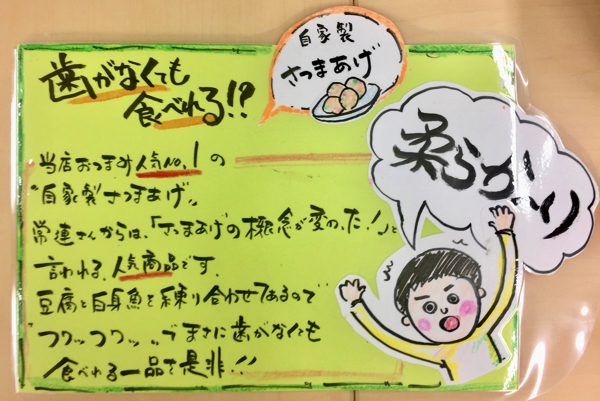 歯がなくても
食べれる!?
自家製
さつまあげ
当店おつまみ人気No.1の
"自家製さつまあげ"
常連さんからは、「さつまあげの概念が変わった！」と
言われる、人気商品です。
豆腐と白身魚を練り合わせてあるので
"フワッフワッ"でまさに歯がなくても
食べれる一品を是非!!
柔らかっ